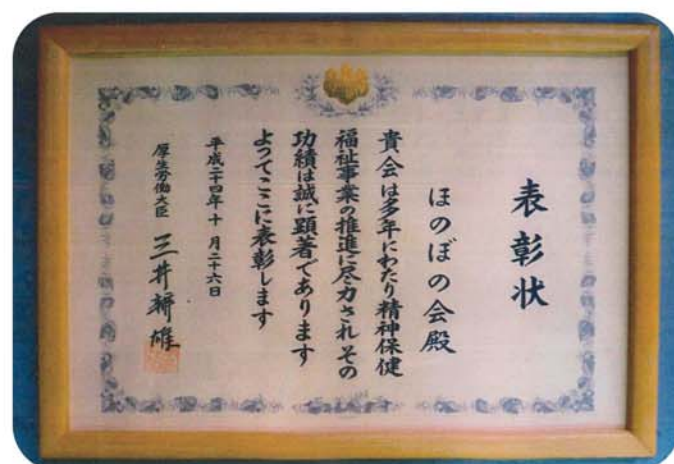 表彰状
ほのぼの会殿
貴会は多年にわたり精神保健
福祉事業の推進に尽力されその
功績は誠に顕著であります
よってここに表彰します
平成二十四年十月二十六日
厚生労働大臣 三井辨雄